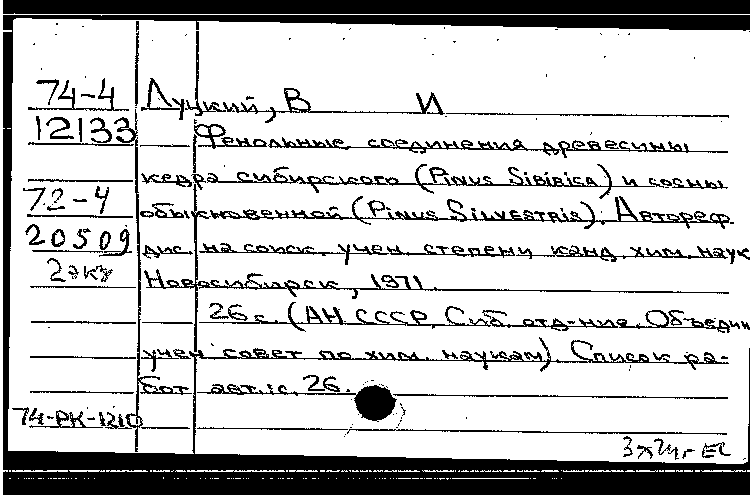 74-4 Луцкий, В И
12133 Фенольные соединения древесины
кедра сибирского (Pinus Sibirica) и сосны
72-4 обыкновенной (Pinus Silvestris). Автореф.
20509 дис. на соиск. учен. степени канд. хим. наук
2 экз Новосибирск, 1971.
26 с. (АН СССР, Сиб. отд-ние. Объедин
учен совет по хим. наукам). Список ра-
бот авт.: с. 26.
74-РК-1210